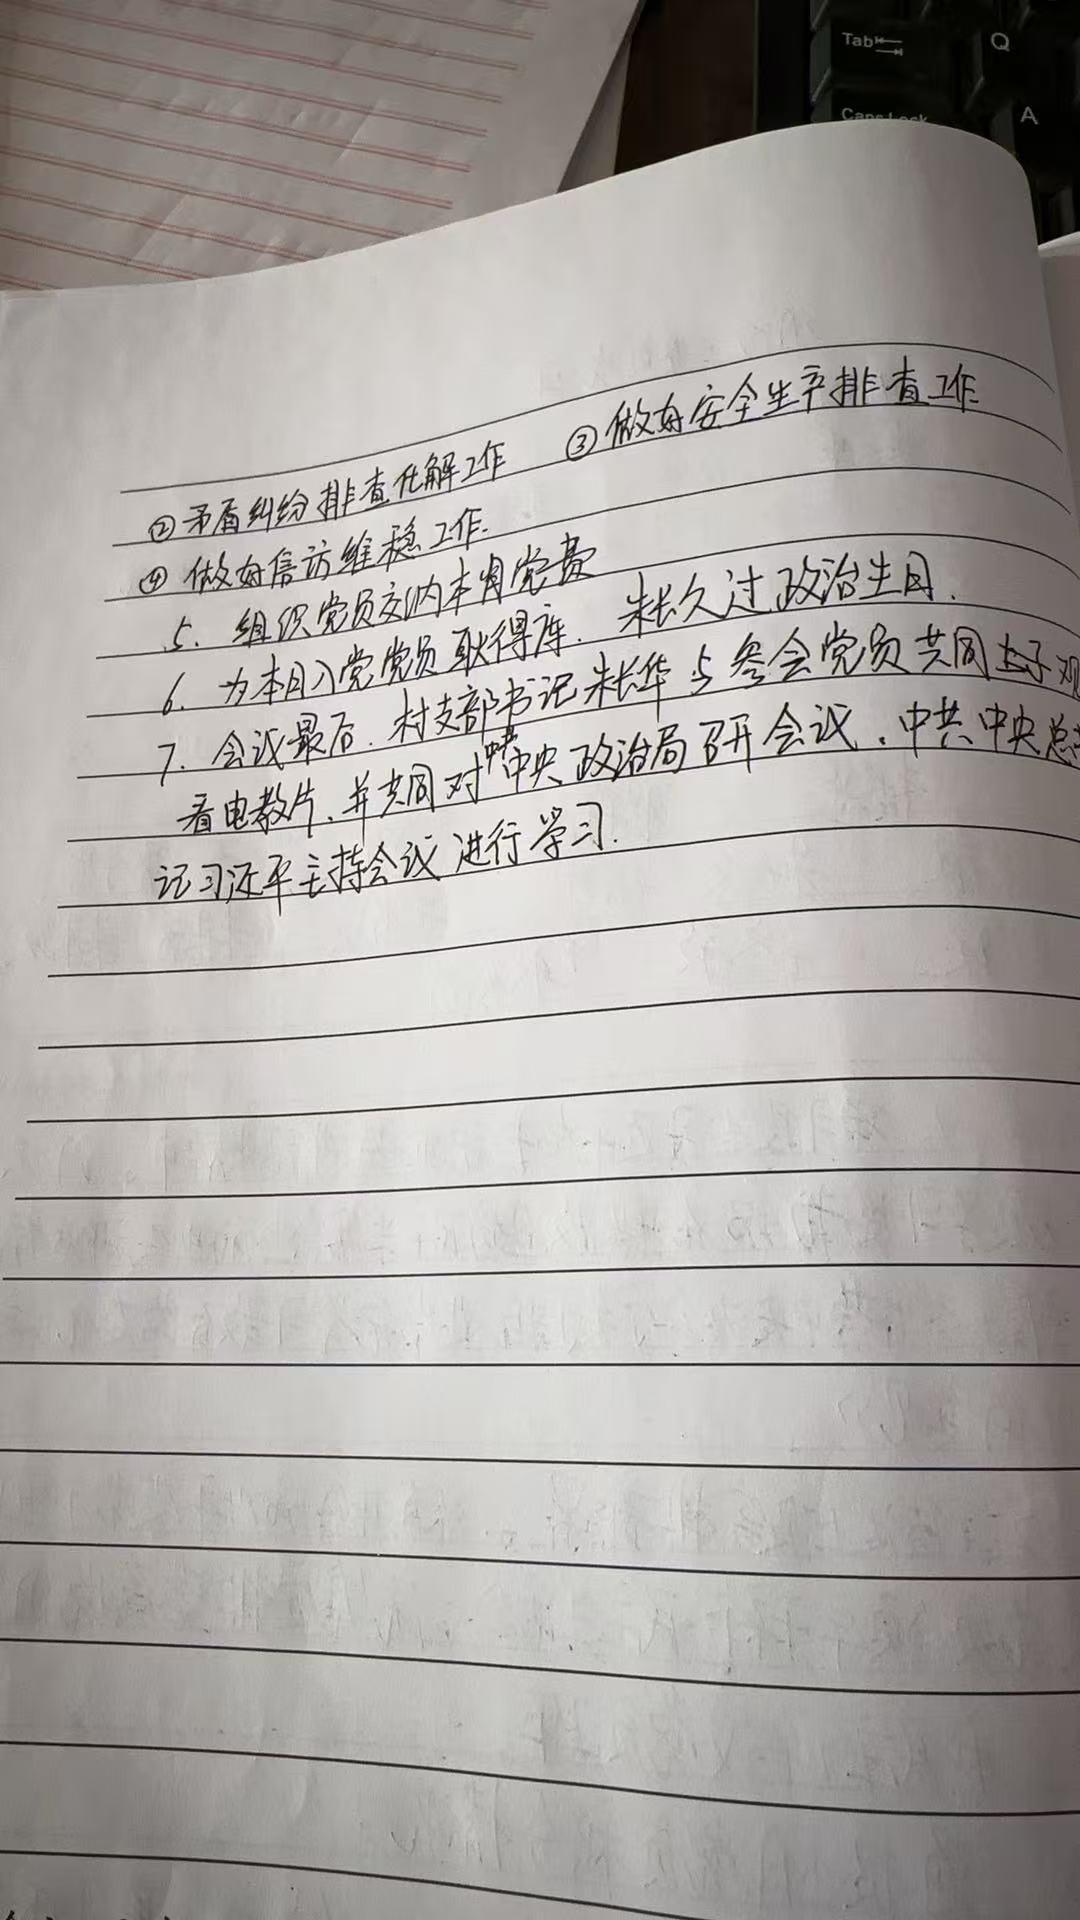 Tab
Q
Caps Lock
A
②矛盾纠纷排查化解工作 ③做好安全生产排查工作
④做好信访维稳工作.
5. 组织党员交纳本月党费
6. 为本月入党党员耿得库、朱长久过政治生日.
7. 会议最后、村支部书记朱长华与参会党员共同 观
看电教片、并共同对中共中央政治局召开会议、中共中央总书
记习近平主持会议进行学习.